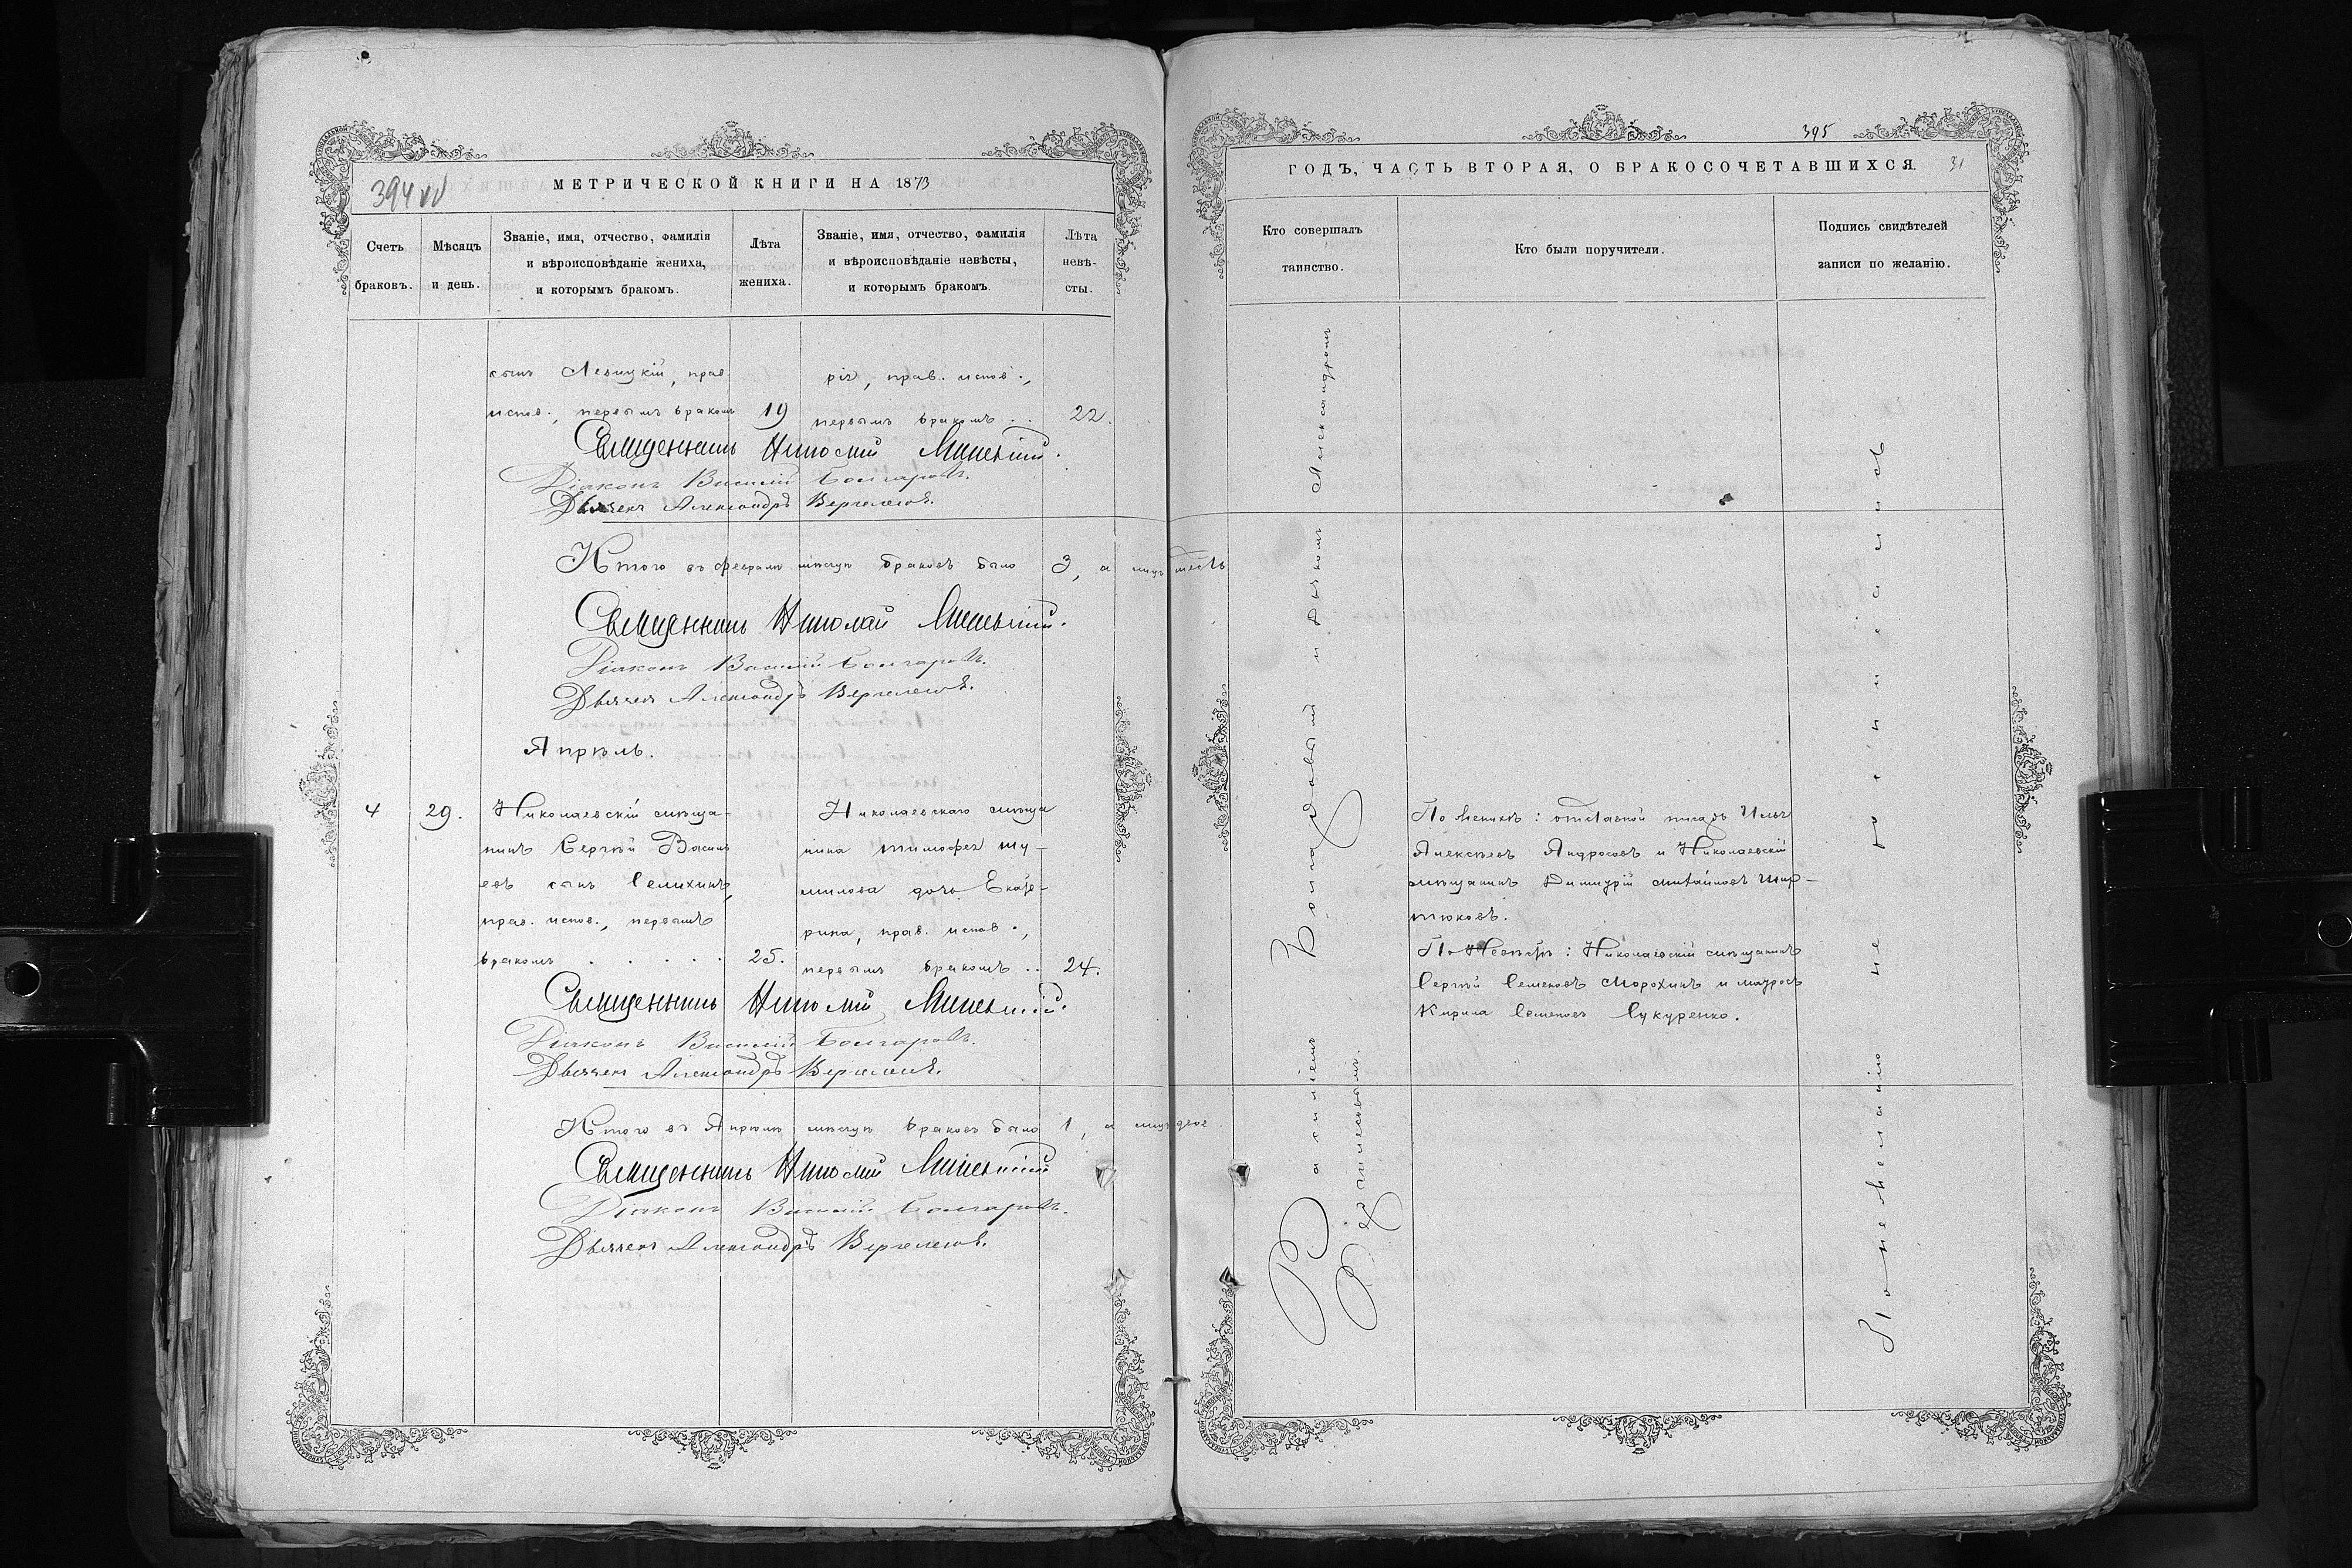 394
МЕТРИЧЕСКОЙ КНИГИ НА 1873
Счетъ браковъ.
Мѣсяцъ и день.
Званіе, имя, отчество, фамилія
и вѣроисповѣданіе жениха,
и которымъ бракомъ.
Лѣта
жениха.
Званіе, имя, отчество, фамилія
и вѣроисповѣданіе невѣсты,
и которымъ бракомъ
Лѣта
невѣ-
сты.
сынъ Левицкій, прав.
испов., первымъ бракомъ 19
рія, прав. испов.,
первымъ бракомъ .. 22.
Священникъ Николай
Діаконъ Василій Болгаровъ.
Дьячекъ Александръ
Итого въ Февралѣ мѣсяцѣ браковъ было 3, а лицъ шесть
Священникъ Николай
Діаконъ Василій Болгаровъ.
Дьячекъ Александръ
Апрѣль.
4
29.
Николаевскій мѣща-
нинъ Сергѣй Василь
евъ сынъ Селихинъ,
прав. испов., первымъ
бракомъ . . . . . 25.
Николаевскаго мѣща
нина Тимофея Шу-
милова дочь Екате-
рина, прав. испов.,
первымъ бракомъ .. 24.
Священникъ Николай
Діаконъ Василій Болгаровъ.
Дьячекъ Александръ
Итого въ Апрѣлѣ мѣсяцѣ браковъ было 1, а лицъ двое.
Священникъ Николай
Діаконъ Василій Болгаровъ.
Дьячекъ Александръ
395
ГОДЪ, ЧАСТЬ ВТОРАЯ, О БРАКОСОЧЕТАВШИХСЯ.
31
Кто совершалъ
таинство.
Кто были поручители.
Подпись свидѣтелей
записи по желанію.
По женихѣ: отставной писарь Илья
Алексѣевъ Андросовъ и Николаевскій
мѣщанинъ Димитрій
тюковъ.
По Невѣстѣ: Николаевскій мѣщанинъ
Сергѣй Семеновъ Морохинъ и матросъ
Кирила Семеновъ Сукуренко.
По нежеланію не росписались